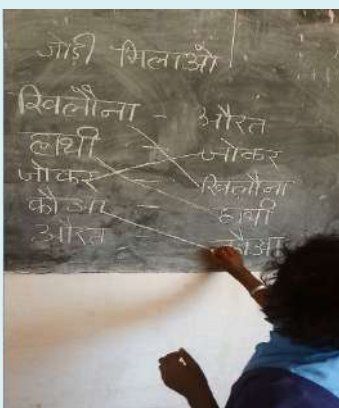 जोड़ी मिलाओ
खिलौना - औरत
हाथी - जोकर
जोकर - खिलौना
कौआ - हाथी
औरत - कौआ